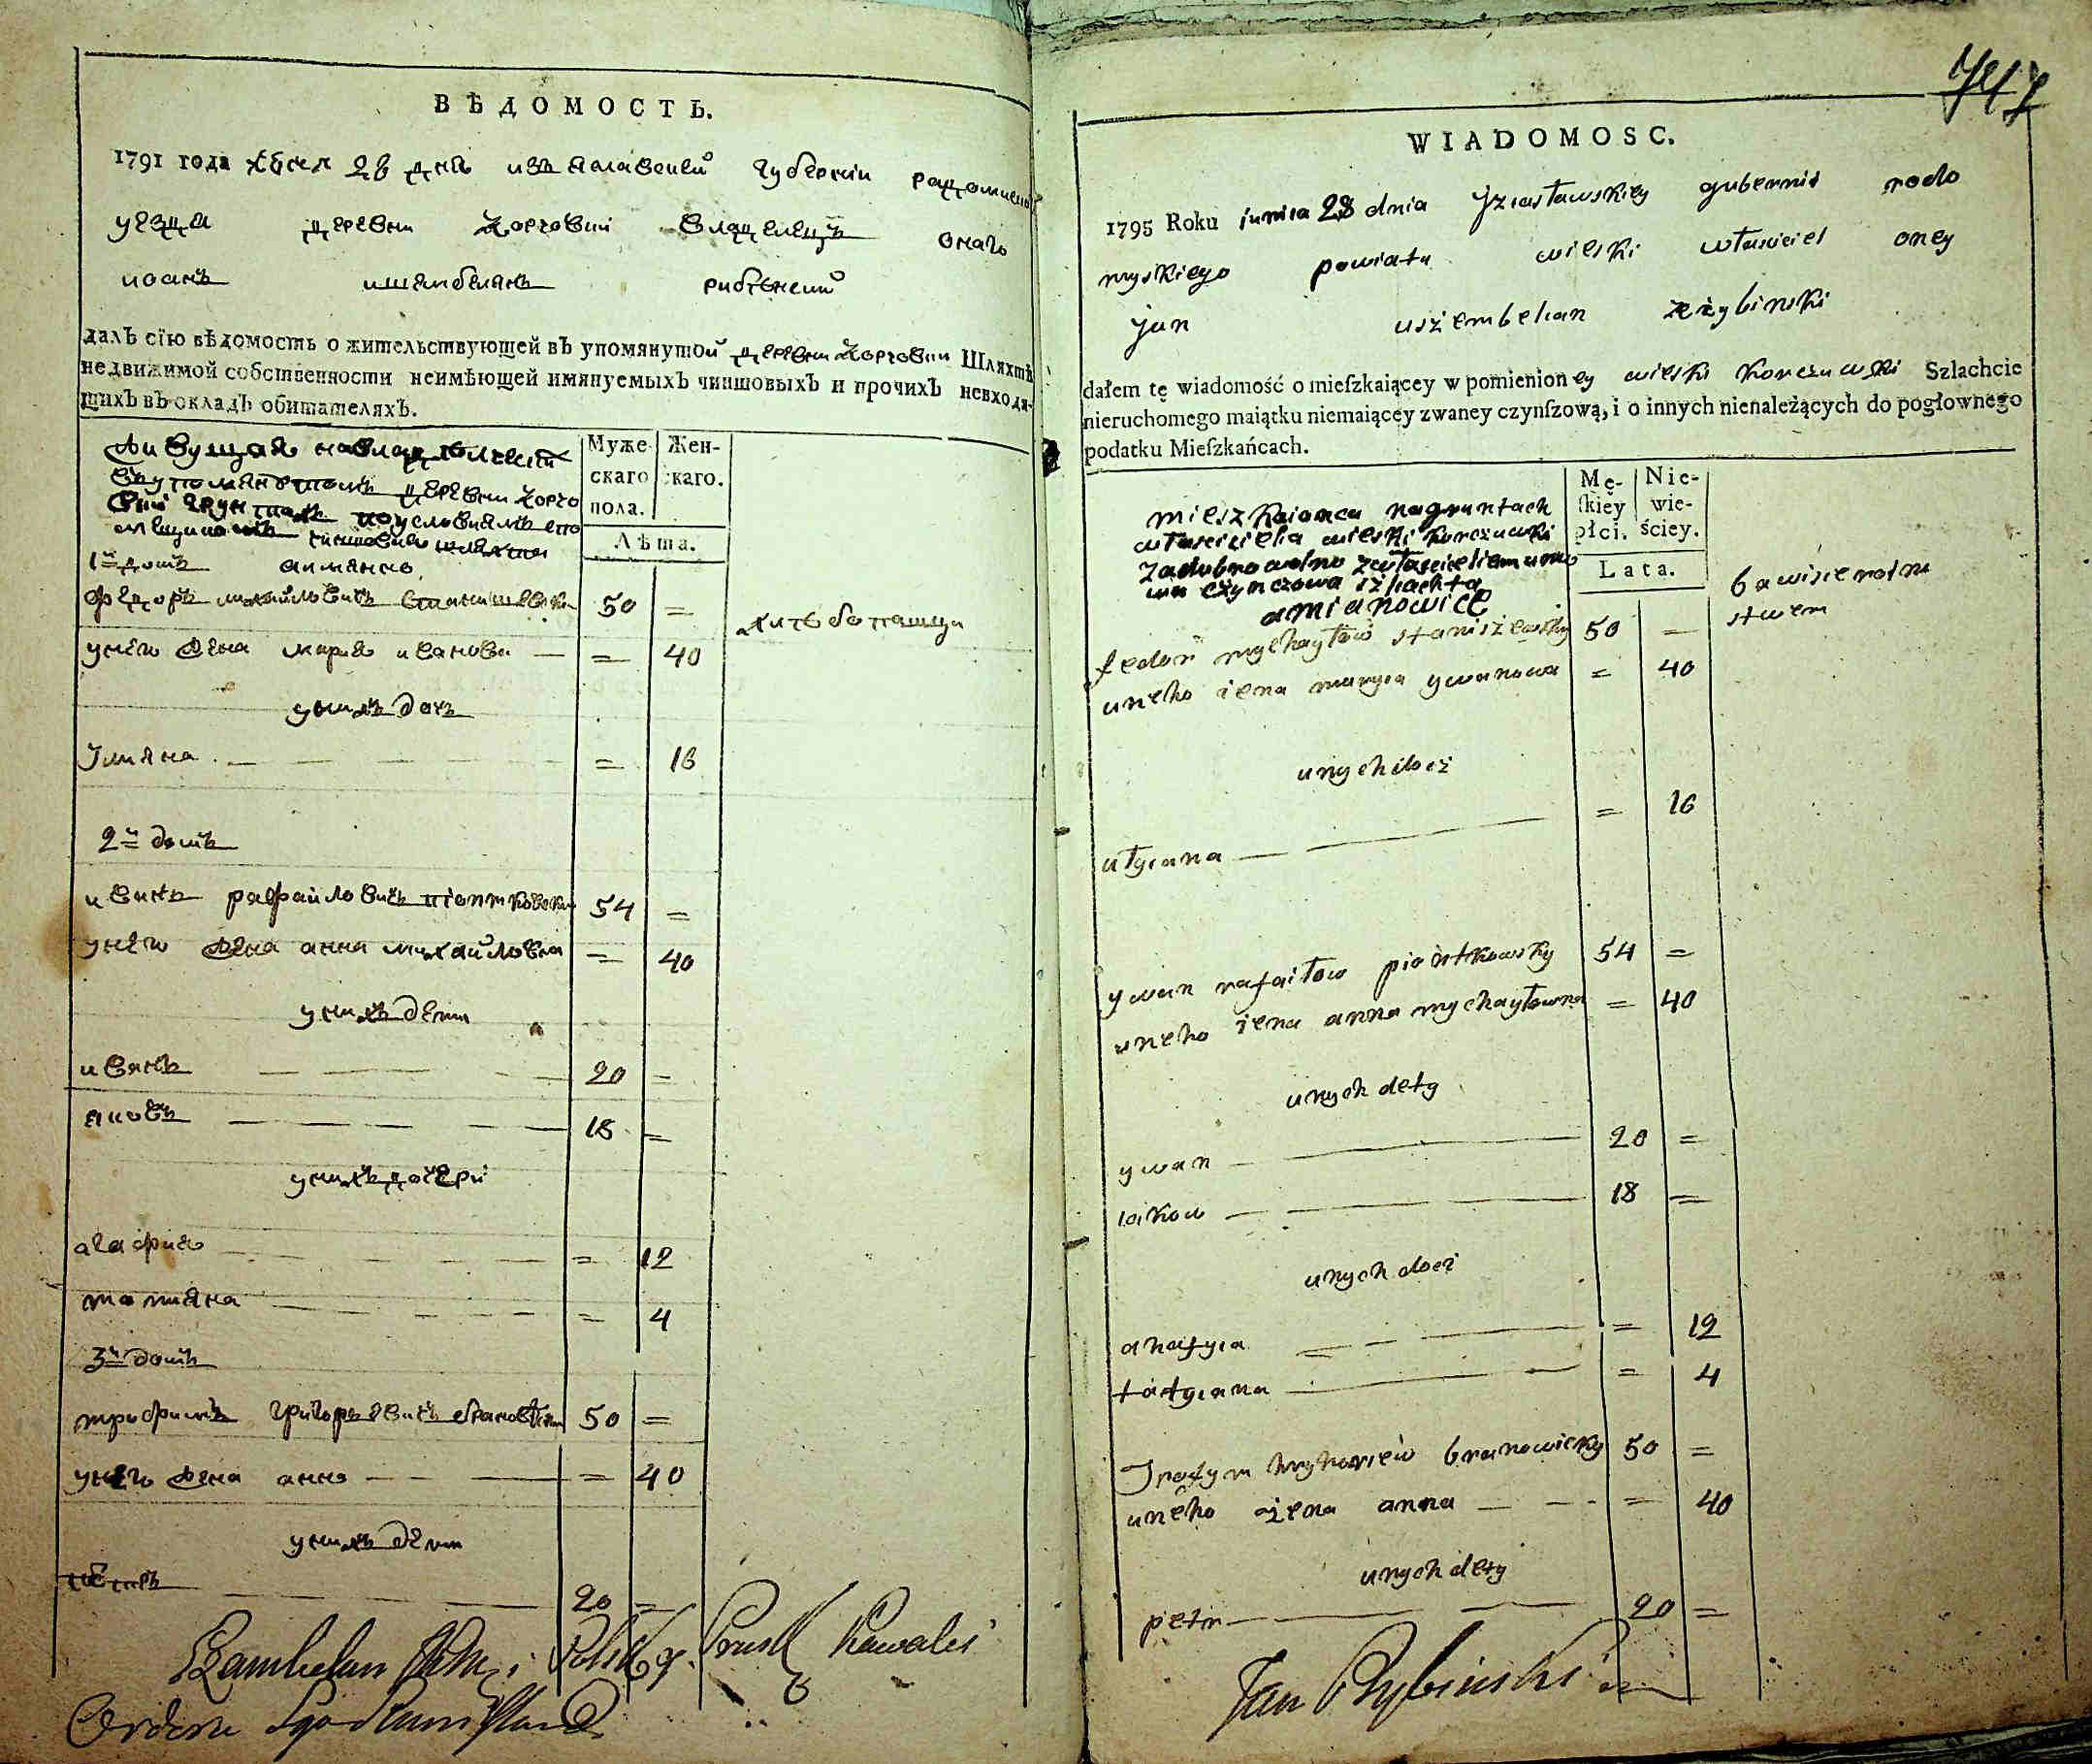 ВѢДОМОСТЬ.
1791 года 28 днѧ изяславской губерніи радомысл
уезда деревни владелецъ онаго
иоанъ шамбелянъ рибѣнский
далъ сїю вѣдомость о жительствующей въ упомянутой деревни Шляхтѣ
недвижимой собственности неимѣющей имянуемыхъ чиншовыхъ и прочихъ невходя-
щихъ въ окладъ обитателяхъ.
Живущая
въ упомянутомъ деревни
чиншовая шляхта
1й домъ а имянно
Муже-
скаго
пола.
Жен-
скаго.
Лѣта.
федоръ михайловичъ станишевски 50 =
хлебопашци
у него жена мария иванова — = 40
у нихъ доч
улияна = 16
2й домъ
иванъ рафайловичъ піонтковски 54 =
у него жена анна михайловна = 40
у нихъ дети
иванъ 20 =
яковъ 18 =
у нихъ дочери
агафия = 12
татияна = 4
3й домъ
трофимъ григорьевичъ 50 =
у него жена анна = 40
у нихъ дети
петръ 20 =
Szambelan i Polsk
Kawaler
Orderu
747
WIADOMOSC.
1795 Roku junia 28 dnia Jziasławskiey gubernii rado
myskiego powiatu wieski własciciel oney
jan uszembelian rżybinski
dałem tę wiadomość o mieſzkaiącey w pomienioney wieski korczuwski Szlachcie
nieruchomego maiątku niemaiącey zwaney czynſzową, i o innych nienależących do pogłownego
podatku Mieſzkańcach.
mieszkaionca nagruntach
własciciela wieski korczuwski
zadobrowolno zwłascicieliem umo
wu czynczowa szliachta
amianowice
Mę-
ſkiey
płci.
Nie-
wie-
ściey.
Lata.
bawisie rolni
stwem
fedor mychayłow staniszewsky 50 =
uneho żena maryia ywanowa = 40
unych docz
ułyiana = 16
ywan rafaiłow piontkowsky 54 =
uneho żena anna mychayłowna = 40
unych dety
ywan 20 =
iakow 18 =
unych docz
ahafyia = 12
tatyiana = 4
Trofym hryhoriew branowicky 50 =
uneho żena anna = 40
unych dety
petr 20 =
Jan Rybinski